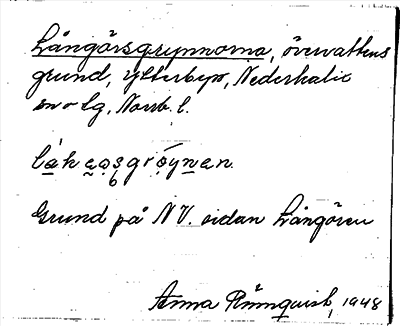 Långörsgrynnorna, övervattens
grund, Ytterbyn, Nederkalix
sn o lg, Norrb. l.
Grund på NV. sidan Långören
Anna Rönnquist, 1948